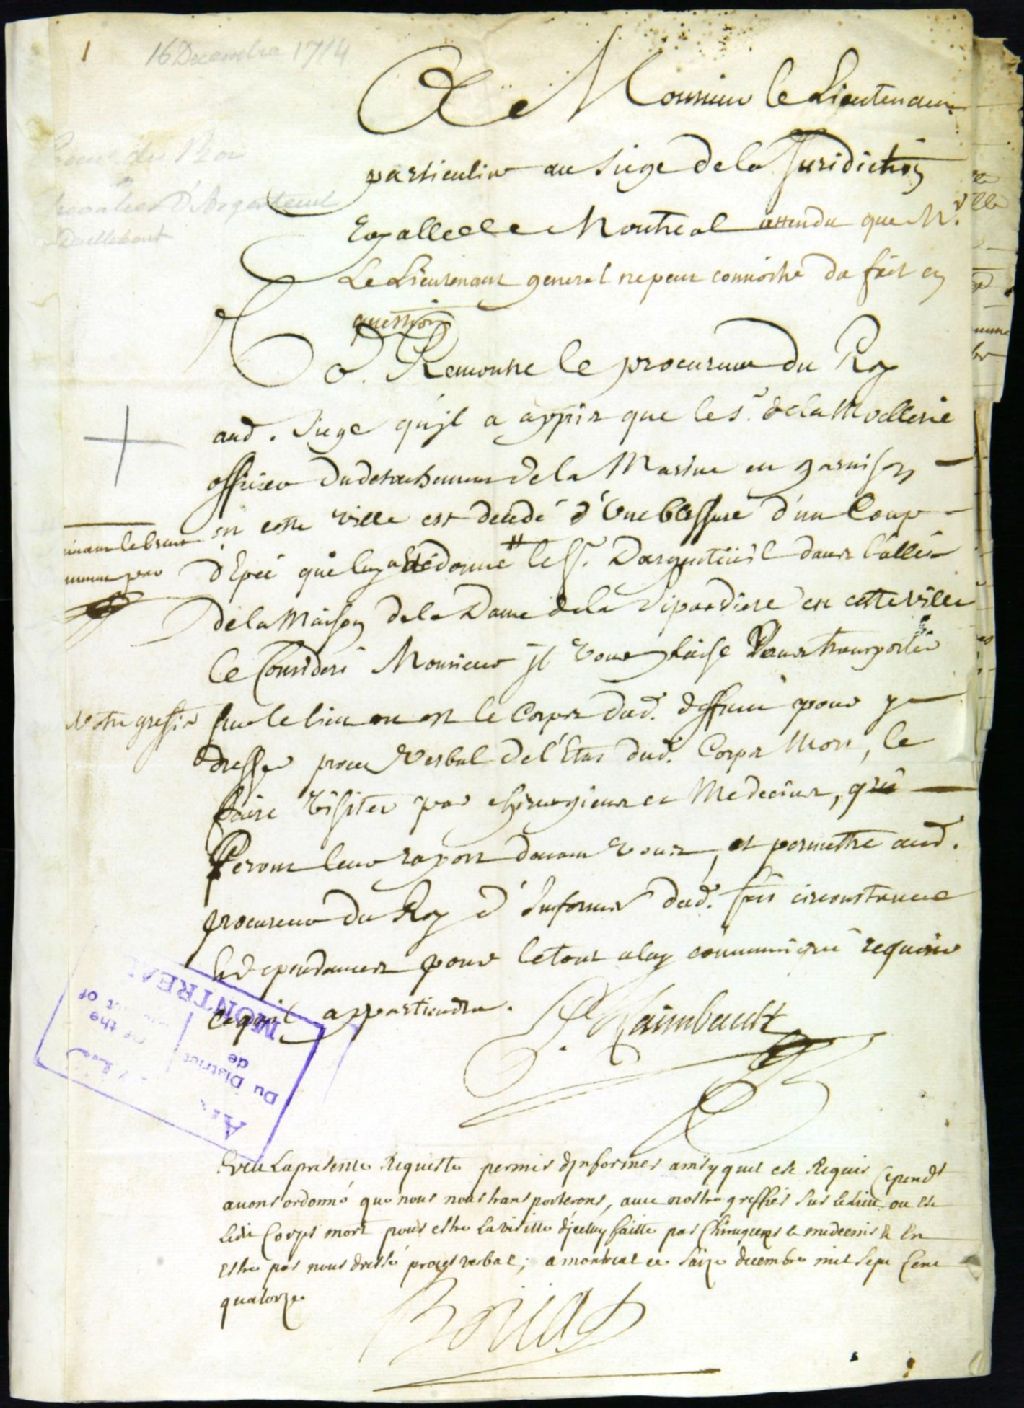 1
16 Decembre 1714
A Monsieur le Lieutenant
particulier au siege de la Juridiction
Royalle de Montreal attendu que Mr.
Le Lieutenant general ne peut connoitre du fait en
question
Remontre le procureur du Roy
aud. Siege qu'jl a appris que le sr. de la Mollerie
officier du detachement de la Marine en garnison
en cette ville est decedé d'Une blessure d'un Coup
d'Epée que luy a donné # le Sr. Dargenteuil dans l'allée
de la Maison de la Dame de la Sipardiere en cette ville
Ce Consideré Monsieur jl vous plaise Vous transporter
Votre greffier
sur le lieu ou est le Corps dud. deffunt pour y
dresser proces Verbal de l'Etat dud. Corps Mort, le
faire Visiter par chirurgiens et Medecins, qui
feront leur raport devant vous, et permettre aud.
procureur du Roy d'Informer dud. fait circonstances
& dependances pour le tout a luy communiqué requerir
ce qu'il appartiendra.
J. Raimbault
Veu La presente Requiste permis d'jnformer ainsy quil est Requis Cepend.t
avons ordonné que nous nous transporterons, avec nostre greffier sur le lieu ou est
ledit Corps mort pour estre la visitte d'jceluy faitte par Chirurgiens & medecins & En
estre par nous dressé proces verbal; a montreal ce Saize decembre mil Sept Cent
quatorze
MONTREAL
of the
Du District
de